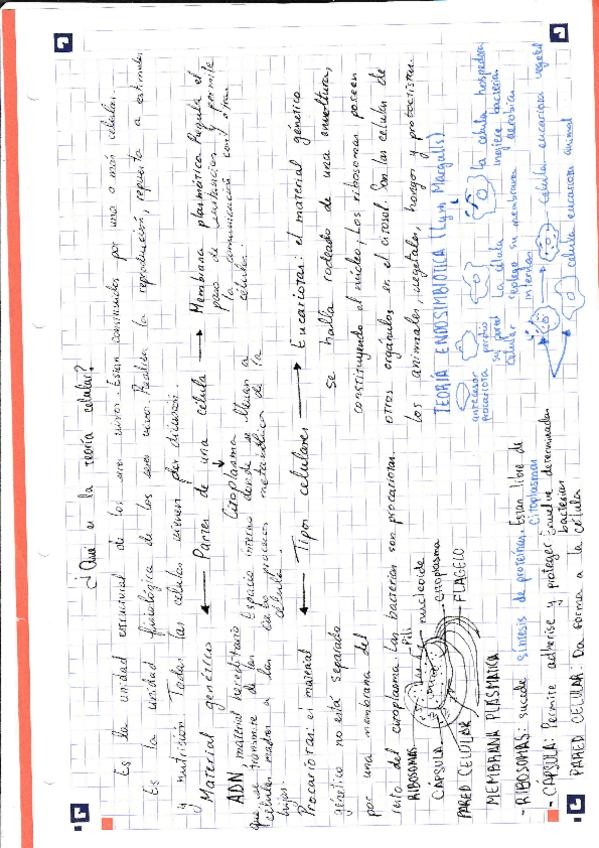 ¿Qué es la teoría celular?
Es la unidad estructural de los seres vivos. Están constituidos por una o más células.
Es la unidad fisiológica de los seres vivos. Realiza la reproducción, respuesta a estímulos
y nutrición. Todas las células vienen por división.
Material genético ← Partes de una célula → Membrana plasmática: Regula el
paso de sustancias y permite
la comunicación con otras
células.
ADN, material hereditario
que se transmite de las
células madres a las
hijas.
Citoplasma
Espacio interno donde se llevan a
cabo procesos metabólicos de la
célula.
← Tipos celulares →
Procariotas: el material
genético no está separado
por una membrana del
resto del citoplasma. Las bacterias son procariotas.
Eucariotas: el material genético
se halla rodeado de una envoltura,
constituyendo el núcleo; Los ribosomas poseen
otros orgánulos en el citosol. Son las células de
los animales, vegetales, hongos y protoctistas.
RIBOSOMAS
Pili
nucleoide
CÁPSULA
citoplasma
PARED CELULAR
FLAGELO
MEMBRANA PLASMÁTICA
- RIBOSOMAS: sucede síntesis de proteínas. Están libre de
citoplasmas
- CÁPSULA: Permite adherirse y proteger. Envuelve determinadas
bacterias
PARED CELULAR: Da forma a la célula
TEORÍA ENDOSIMBIÓTICA (Lynn Margulis)
antecesor
procariota
perdió
su pared
celular
La célula
replegó su membrana
la célula hospedera
ingiere bacterias
aerobias
célula eucariota vegetal
célula eucariota animal